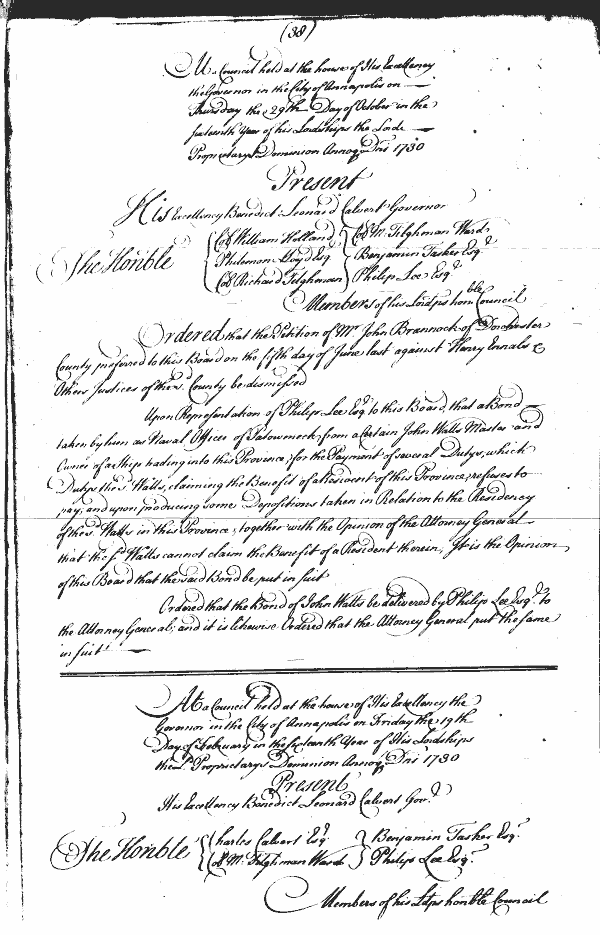 (38)
At a Council held at the house of His Excellency
the Governor in the City of Annapolis on
Thursday the 29th Day of October in the
sixteenth Year of his Lordships the Lords
Proprietarys Dominion Annoq Dni 1730
Present
His Excellency Benedict Leonard Calvert Governor
The Honble
Col William Holland Col M. Tilghman Ward
Philemon Lloyd Esq Benjamin Tasker Esqr
Col Richard Tilghman Philip Lee Esqr
Members of his Lordps honble Council
Ordered that the Petition of Mr John Brannock of Dorchester
County preferred to this Board on the fifth day of June last against Henry Ennals &
Others Justices of the sd. County be dismissed
Upon Representation of Philip Lee Esqr to this Board, that a Bond
taken by him as Naval Officer of Patowmeck, from a Certain John Watts Master and
Owner of a Ship trading into this Province, for the Payment of several Dutys, which
Dutys the sd. Watts, claiming the Benefit of a Resident of this Province, refuses to
pay; and upon producing some Depositions taken in Relation to the Residency
of the sd. Watts in this Province, together with the Opinion of the Attorney General
that the sd Watts cannot claim the Benefit of a Resident therein, It is the Opinion
of this Board that the said Bond be put in suit
Ordered that the Bond of John Watts be delivered by Philip Lee Esqr. to
the Attorney General; and it is likewise Ordered that the Attorney General put the same
in suit
At a Council held at the house of His Excellency the
Governor in the City of Annapolis on Friday the 19th
Day of February in the sixteenth Year of His Lordships
the Ld Proprietarys Dominion Annoq Dni 1730
Present
His Excellency Benedict Leonard Calvert Govr
The Honble
Charles Calvert Esqr Benjamin Tasker Esqr.
Col M. Tilghman Ward Philip Lee Esqr.
Members of his Ldps honble Council